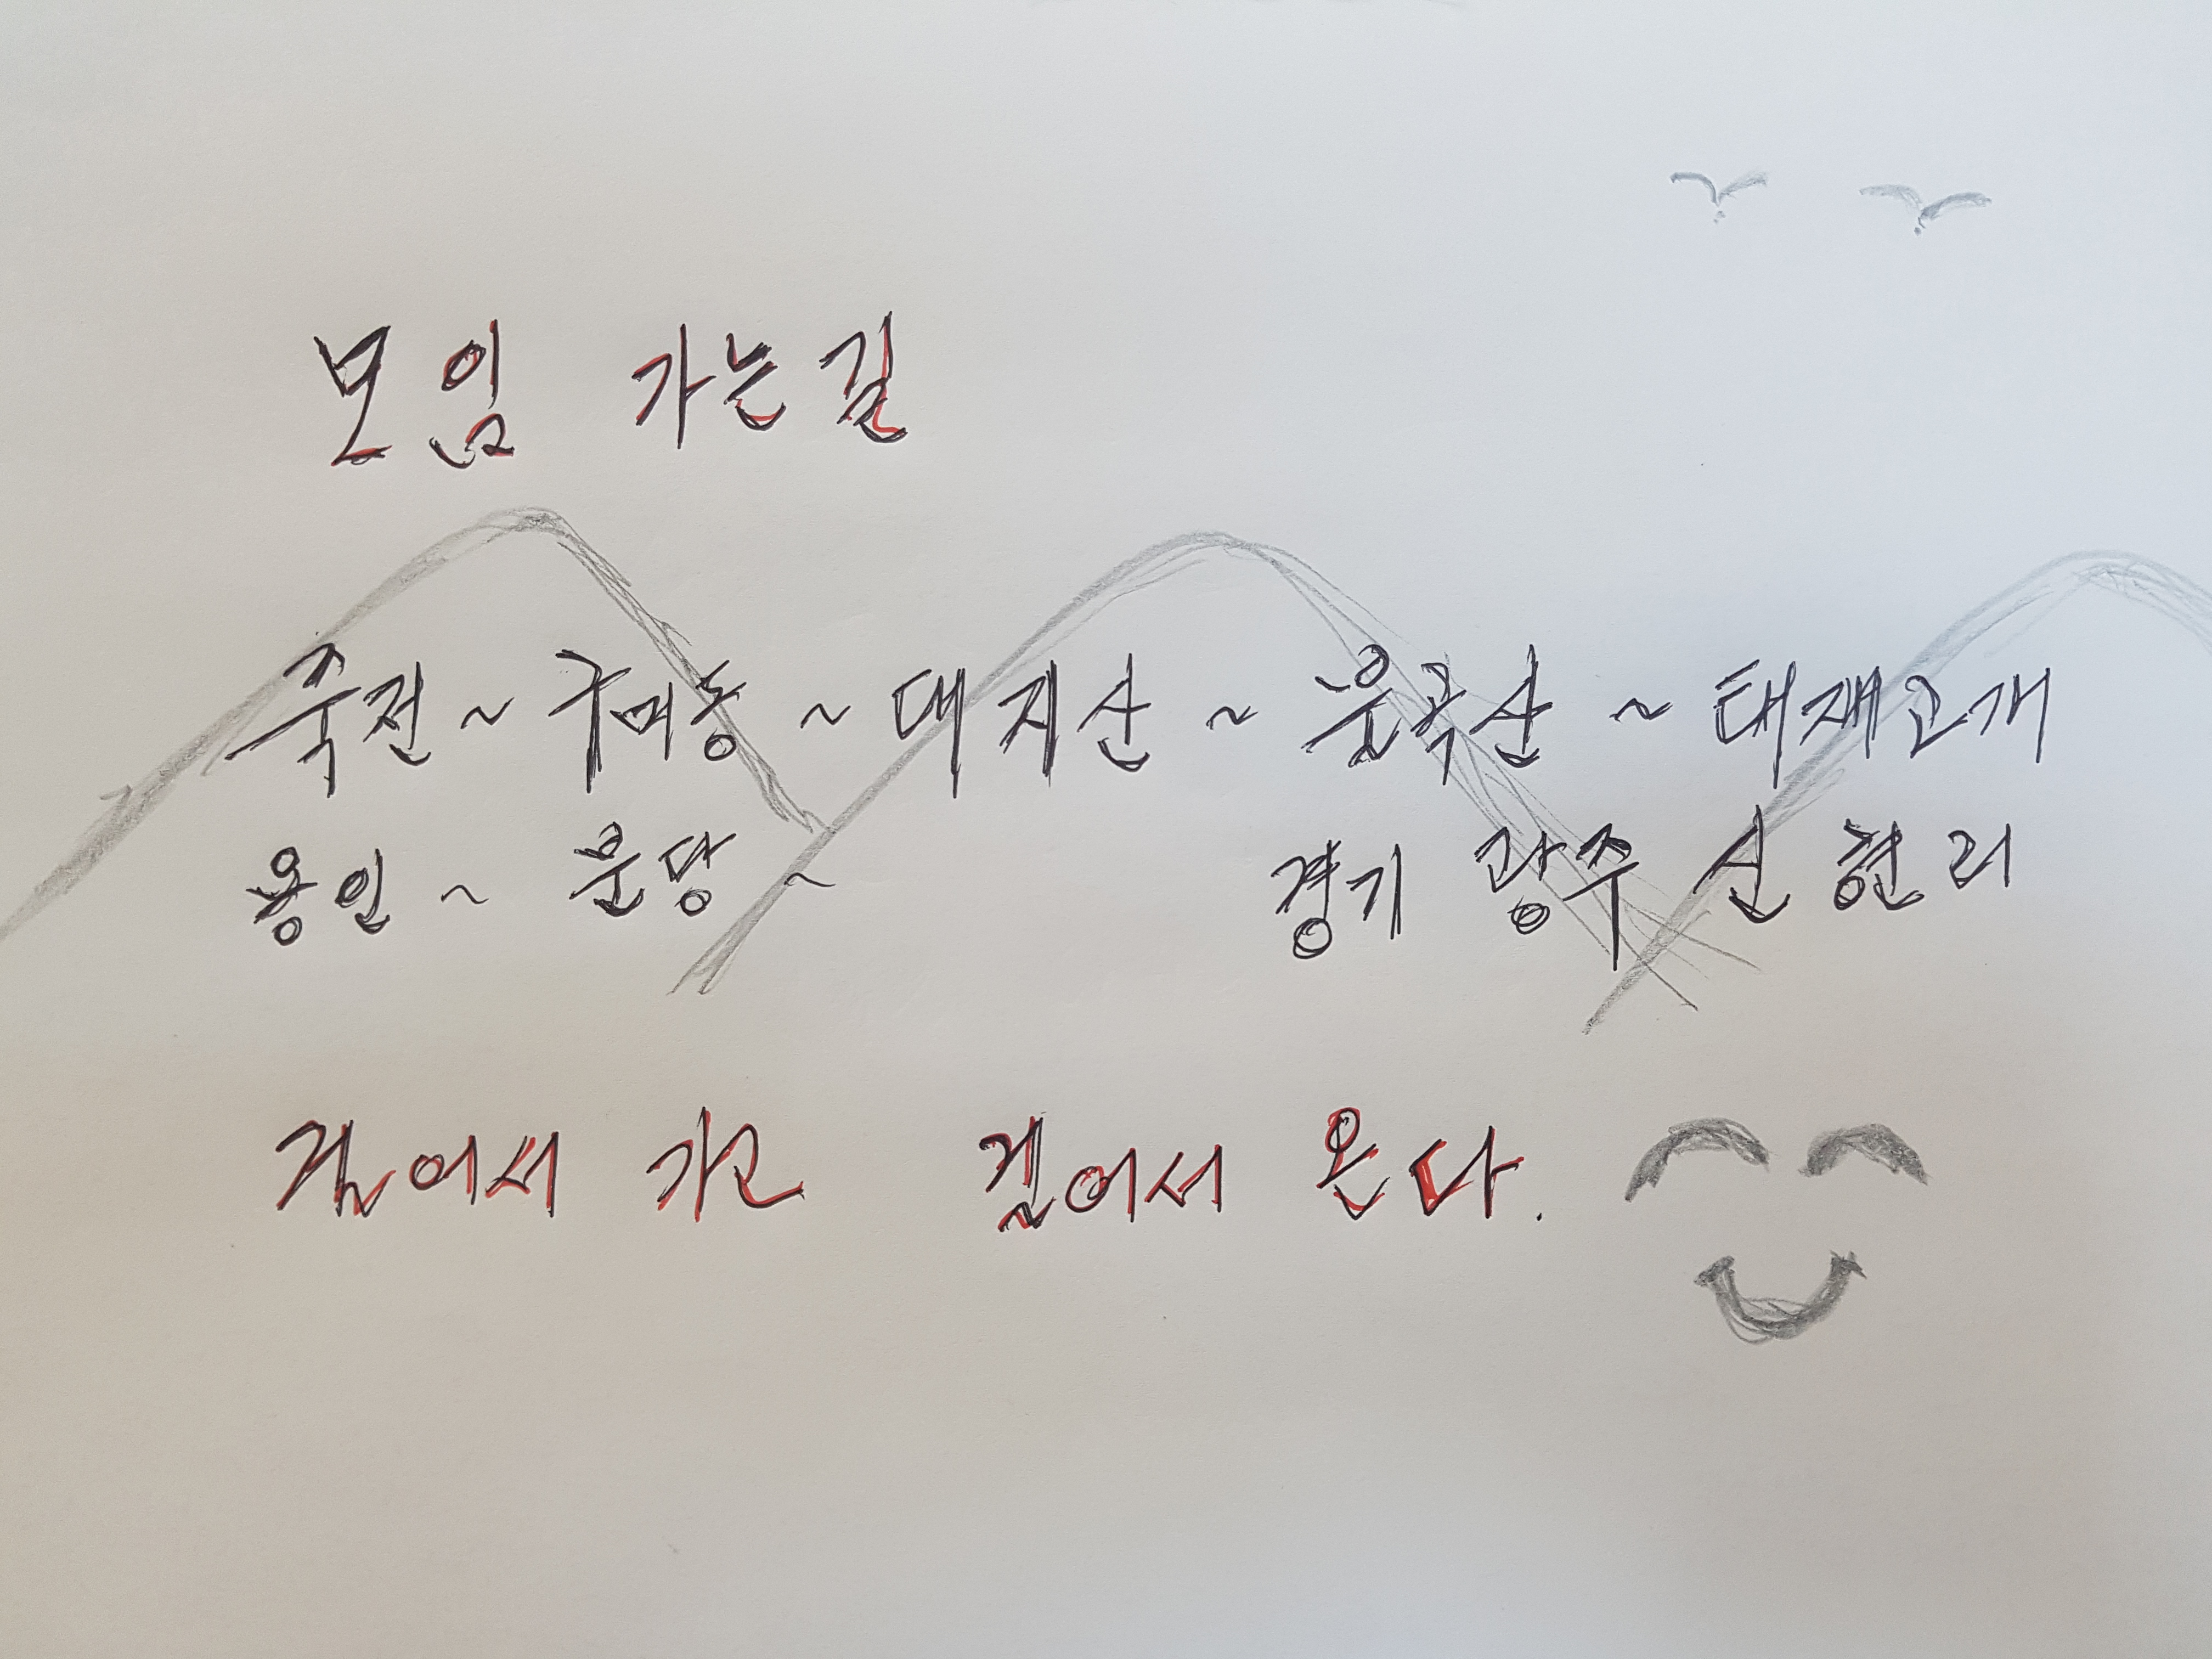 모임 가는길
죽전 ~ 구미동 ~ 대지산 ~ 불곡산 ~ 태재고개
용인 ~ 분당 ~ 경기 광주 신현리
걸어서 가고 걸어서 온다.